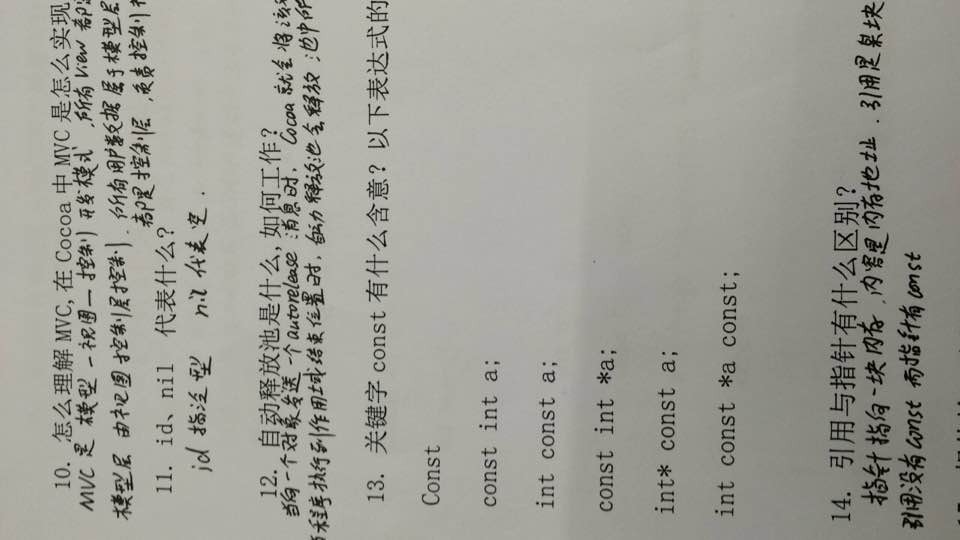 10. 怎么理解MVC,在Cocoa中MVC是怎么实现
MVC是 模型一视图一控制 开发模式,所有View都
模型层 由视图控制层控制).所有用户数据属于模型层
都是控制层,负责控制
11. id、nil 代表什么?
id 指泛型 nil 代表空.
12. 自动释放池是什么,如何工作?
当向一个对象发送一个autorelease消息时, Cocoa就会将该
程序执行到作用域结束位置时,自动释放池会释放,池中所
13. 关键字const有什么含意?以下表达式的
Const
const int a;
int const a;
const int *a;
int* const a;
int const *a const;
14. 引用与指针有什么区别?
指针指向一块内存,内容是内存地址.引用是某块
引用没有const 而指针有const